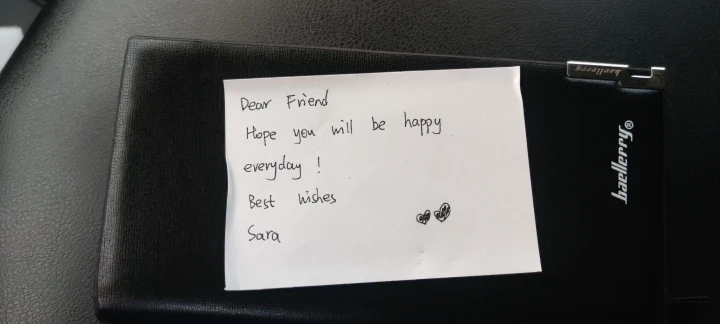 Dear Friend
Hope you will be happy
everyday !
Best wishes
Sara
baellerry
baellerry®